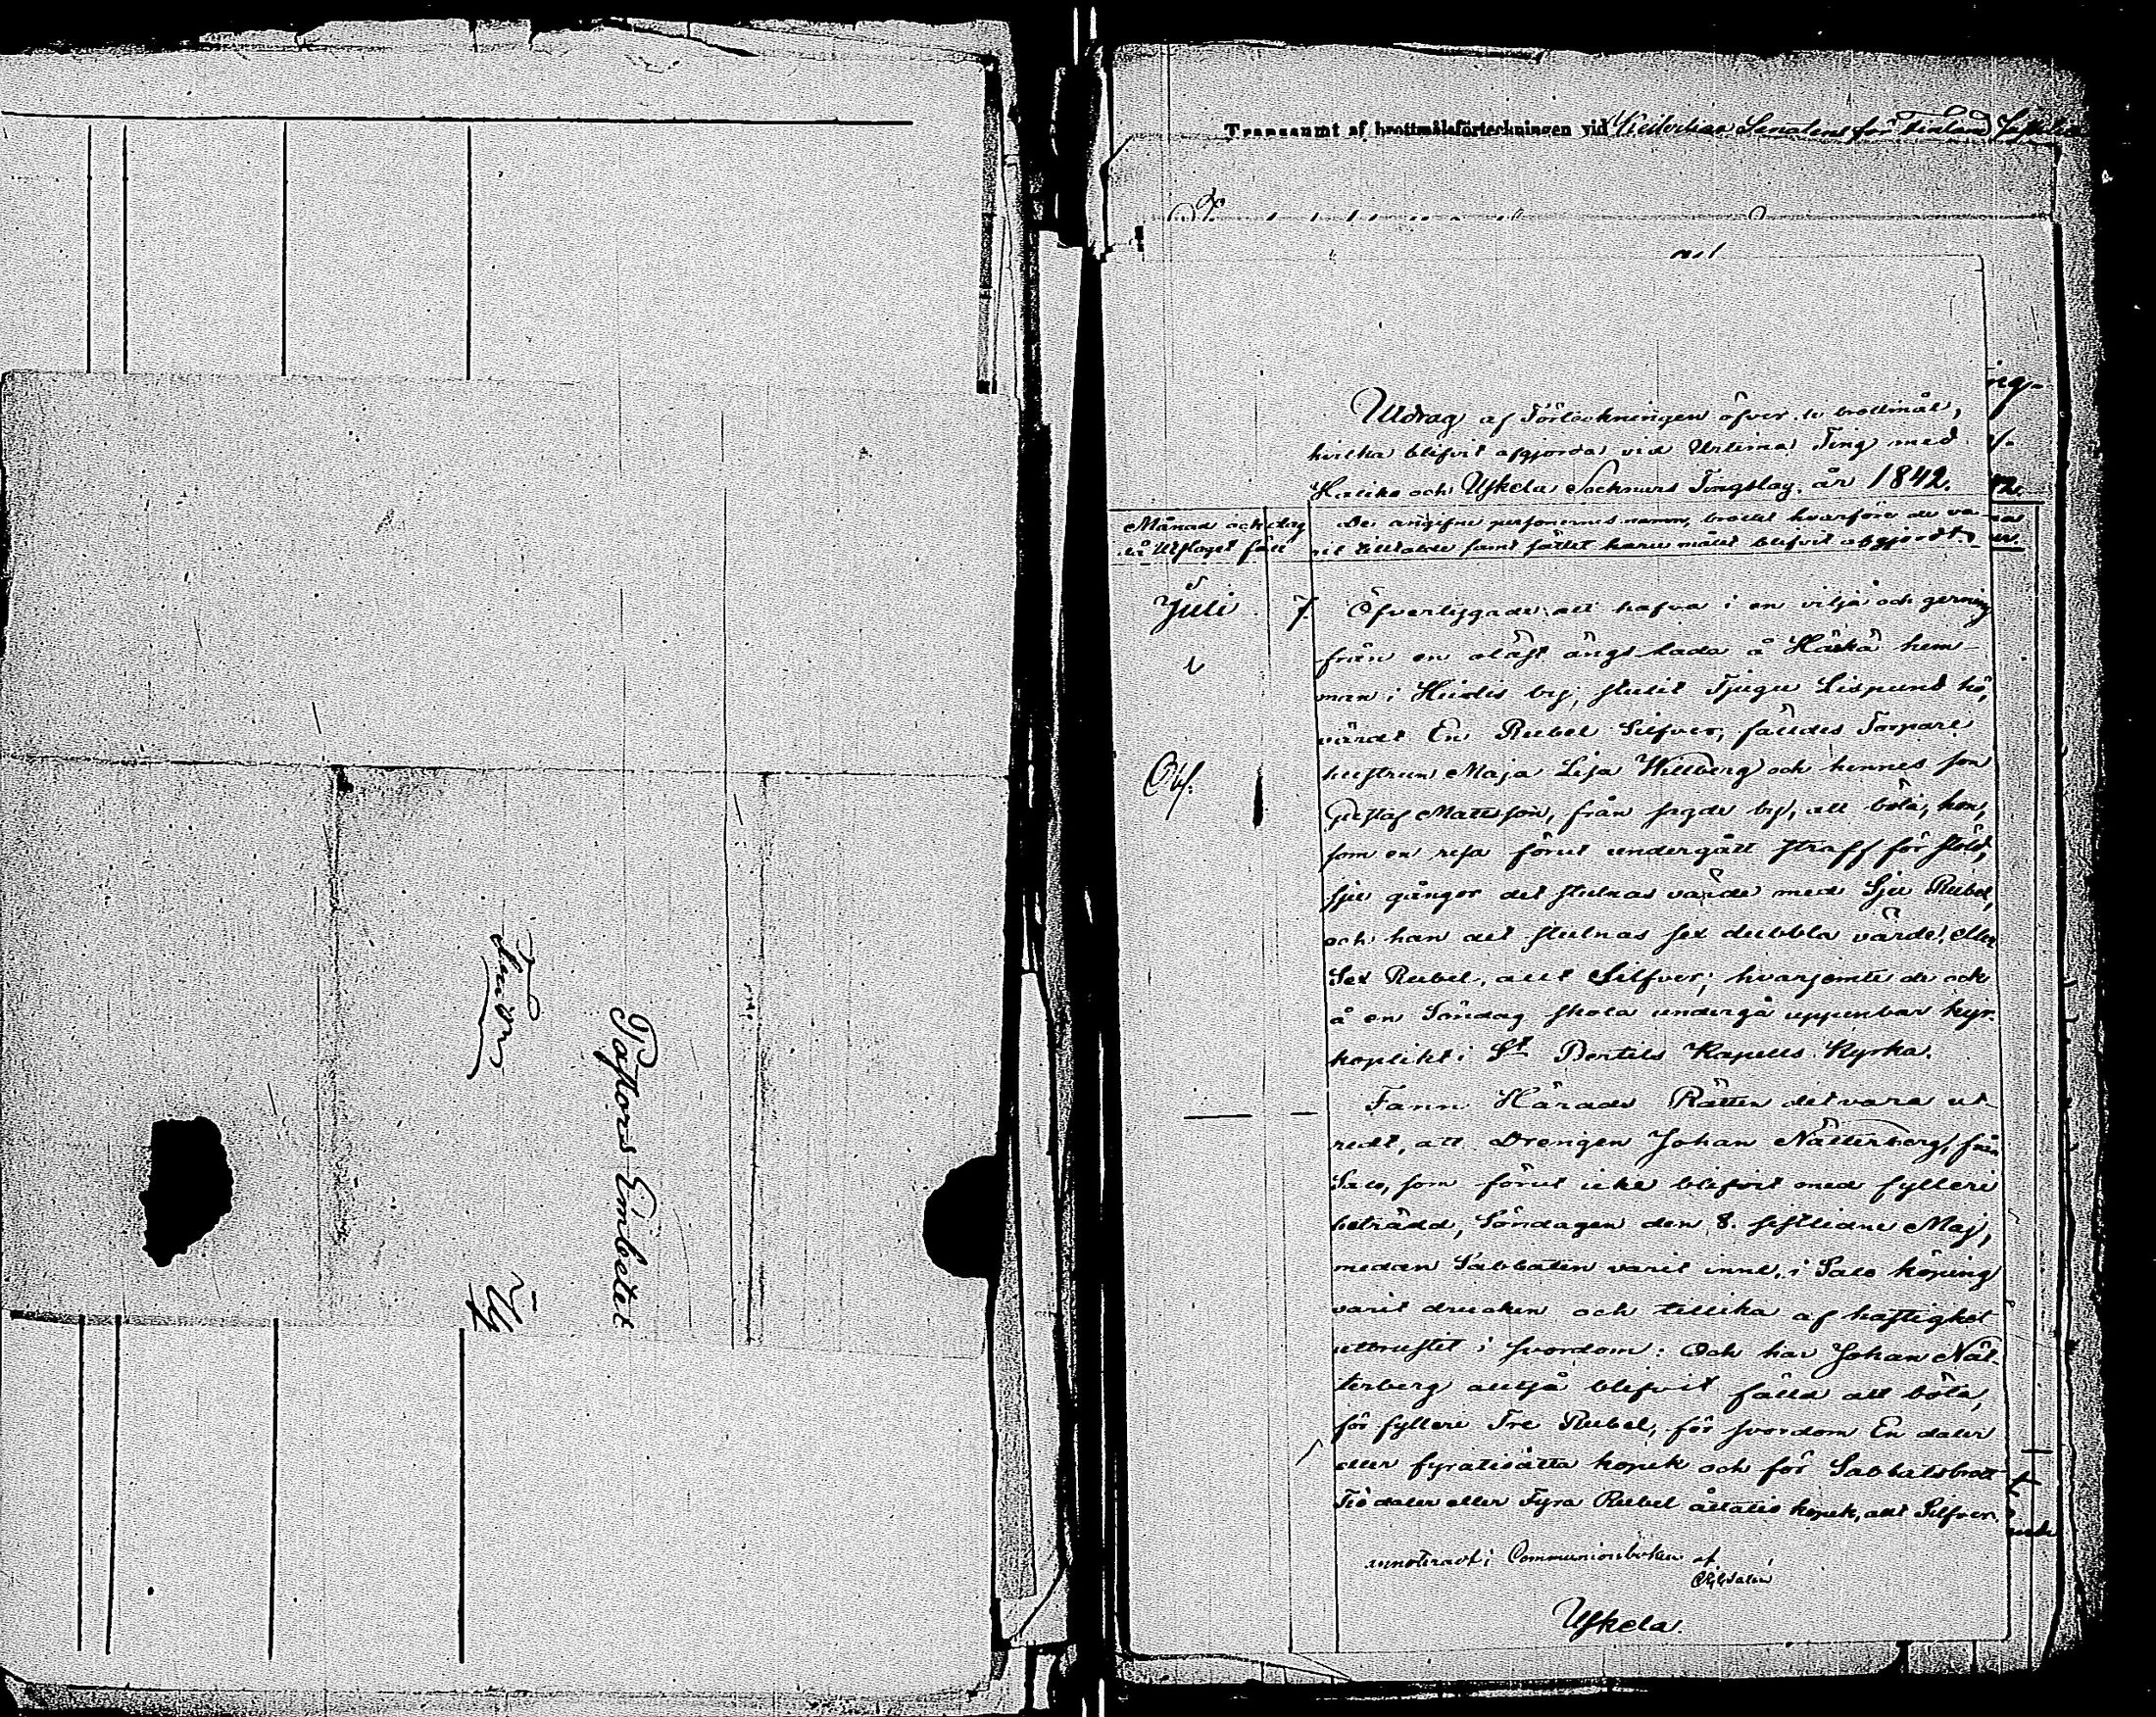 Pastors Embetet
Transsumt af brottmålsförteckningen vid Kejserliga Senatens för Finland Justitie
Utdrag af Förteckningen öfver de brottmål,
hvilka blifvit afgjorda vid Urtima Ting med
Haliko och Uskela Socknars Tingslag år 1842.
Månad och dag
då Utslaget fallit
De angifne personernes namn, brottet hvarföre de va-
rit tilltalade samt sättet huru målet blifvit afgjordt
Juli 7. Öfvertygade att hafva i en vilja och gerning
från en oläst ängslada å Häskä hem-
man i Hiidis by, stulit Tjugu Lispund hö,
värdt En Rubel Silfver, fälldes Torpare
hustrun Maja Lisa Willberg och hennes son
Gustaf Mattsson, från sagde by, att böta, hon,
som en resa förut undergått straff för stöld,
sju gånger det stulnas värde med Sju Rubel,
och han det stulnas sex dubbla värde eller
Sex Rubel, allt Silfver; hvarjemte de ock
å en Söndag skola undergå uppenbar kyr-
koplikt i St Bertils Kapells Kyrka.
Fann Härads Rätten det vara ut-
redt, att Drengen Johan Nätterberg, från
Salo, som förut icke blifvit med fylleri
beträdd, Söndagen den 8. sistlidne Maj,
medan Sabbaten varit inne, i Salo köping
varit drucken och tillika af hastighet
utbrustit i svordom: Och har Johan Nät-
terberg alltså blifvit fälld att böta,
för fylleri Tre Rubel, för svordom En daler
eller fyratioåtta kopek och för Sabbatsbrott
Tio daler eller Fyra Rubel åttatio kopek, allt Silfver.
annoteradt i Communionboken af
Uskela.